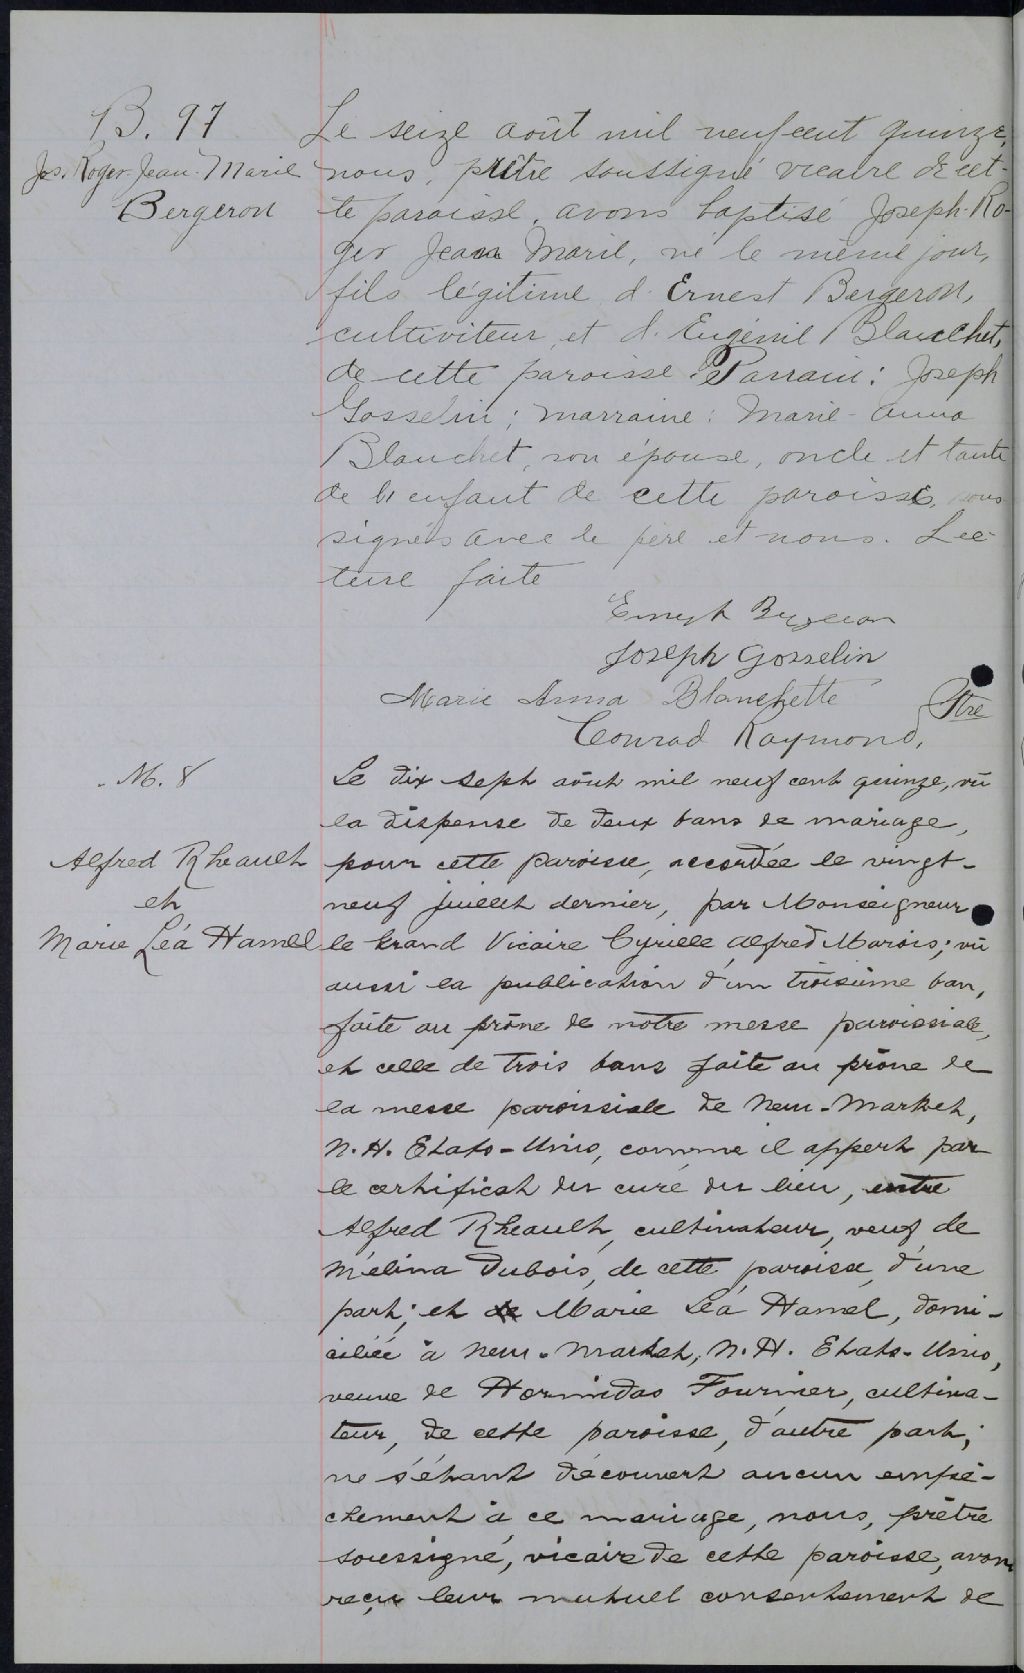 B. 97
Jos. Roger-Jean-Marie
Bergeron
Le seize août mil neuf cent quinze,
nous, prêtre soussigné vicaire de cet-
te paroisse, avons baptisé Joseph-Ro-
ger Jean Marie, né le même jour,
fils légitime d'Ernest Bergeron,
cultiviteur, et d'Eugénie Blanchet,
de cette paroisse. Parrain: Joseph
Gosselin; marraine: Marie-Anna
Blanchet, son épouse, oncle et tante
de l'enfant de cette paroisse, sous
signés avec le père et nous. Lec-
ture faite
Ernest Bergeron
Joseph Gosselin
Marie Anna Blanchette
Conrad Raymond, Ptre
M. 8
Alfred Rheault
et
Marie Léa Hamel
Le dix sept août mil neuf cent quinze, vû
la dispense de deux bans de mariage,
pour cette paroisse, accordée le vingt-
neuf juillet dernier, par Monseigneur
le Grand Vicaire Cyrille Alfred Marois; vû
aussi la publication d'un troisième ban,
faite au prône de notre messe paroissiale,
et celle de trois bans faite au prône de
la messe paroissiale de New-Market,
N. H. Etats-Unis, comme il appert par
le certificat du curé du lieu, entre
Alfred Rheault, cultivateur, veuf de
Mélina Dubois, de cette paroisse, d'une
part; et de Marie Léa Hamel, domi-
ciliée à New-Market, N. H. Etats-Unis,
veuve de Hormidas Fournier, cultiva-
teur, de cette paroisse, d'autre part;
ne s'étant découvert aucun empê-
chement à ce mariage, nous, prêtre
soussigné, vicaire de cette paroisse, avons
reçu leur mutuel consentement de